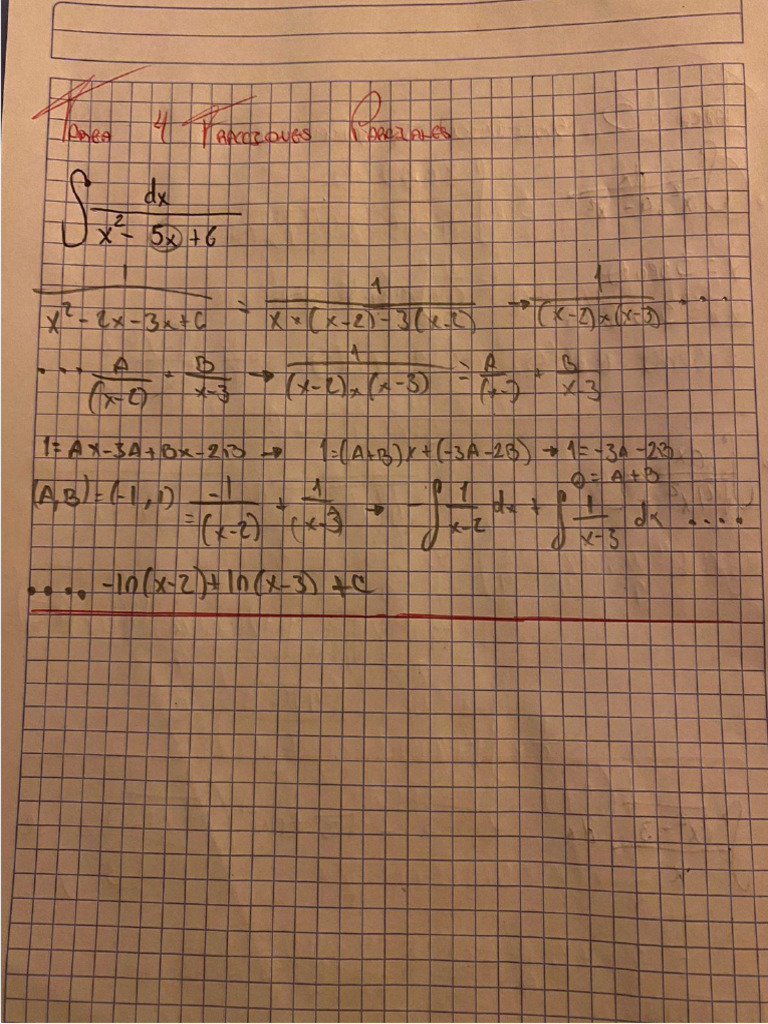 Tarea 4 Fracciones Parciales
∫ dx / (x² - 5x + 6)
1 / (x² - 2x - 3x + 6) = 1 / (x × (x-2) - 3(x-2)) → 1 / ((x-2) × (x-3)) ....
... A / (x-2) + B / (x-3) → 1 / ((x-2) × (x-3)) = A / (x-2) + B / (x-3)
1 = Ax - 3A + Bx - 2B → 1 = (A+B)x + (-3A - 2B) → 1 = -3A - 2B
0 = A + B
(A,B) = (-1, 1) = -1 / (x-2) + 1 / (x-3) → -∫ 1 / (x-2) dx + ∫ 1 / (x-3) dx ....
.... -ln(x-2) + ln(x-3) + C